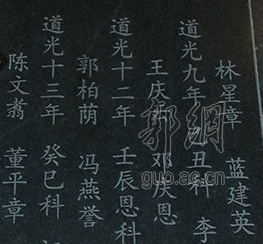 林星章 蓝建英
道光九年 丑科 李
王庆 邓庆恩
道光十二年 壬辰恩科
郭柏荫 冯燕誉
道光十三年 癸巳科
陈文翥 董平章
郭網
guo.ac.cn